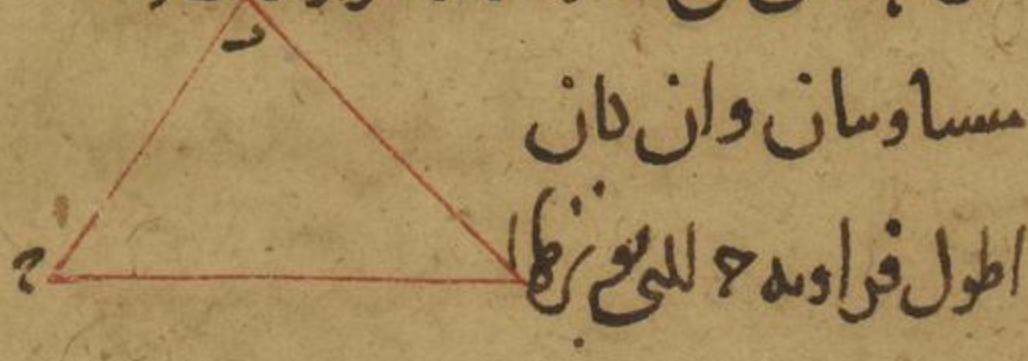 د
متساويتان وان كان
اطول فزاوية ح التي توترها
ا
ح